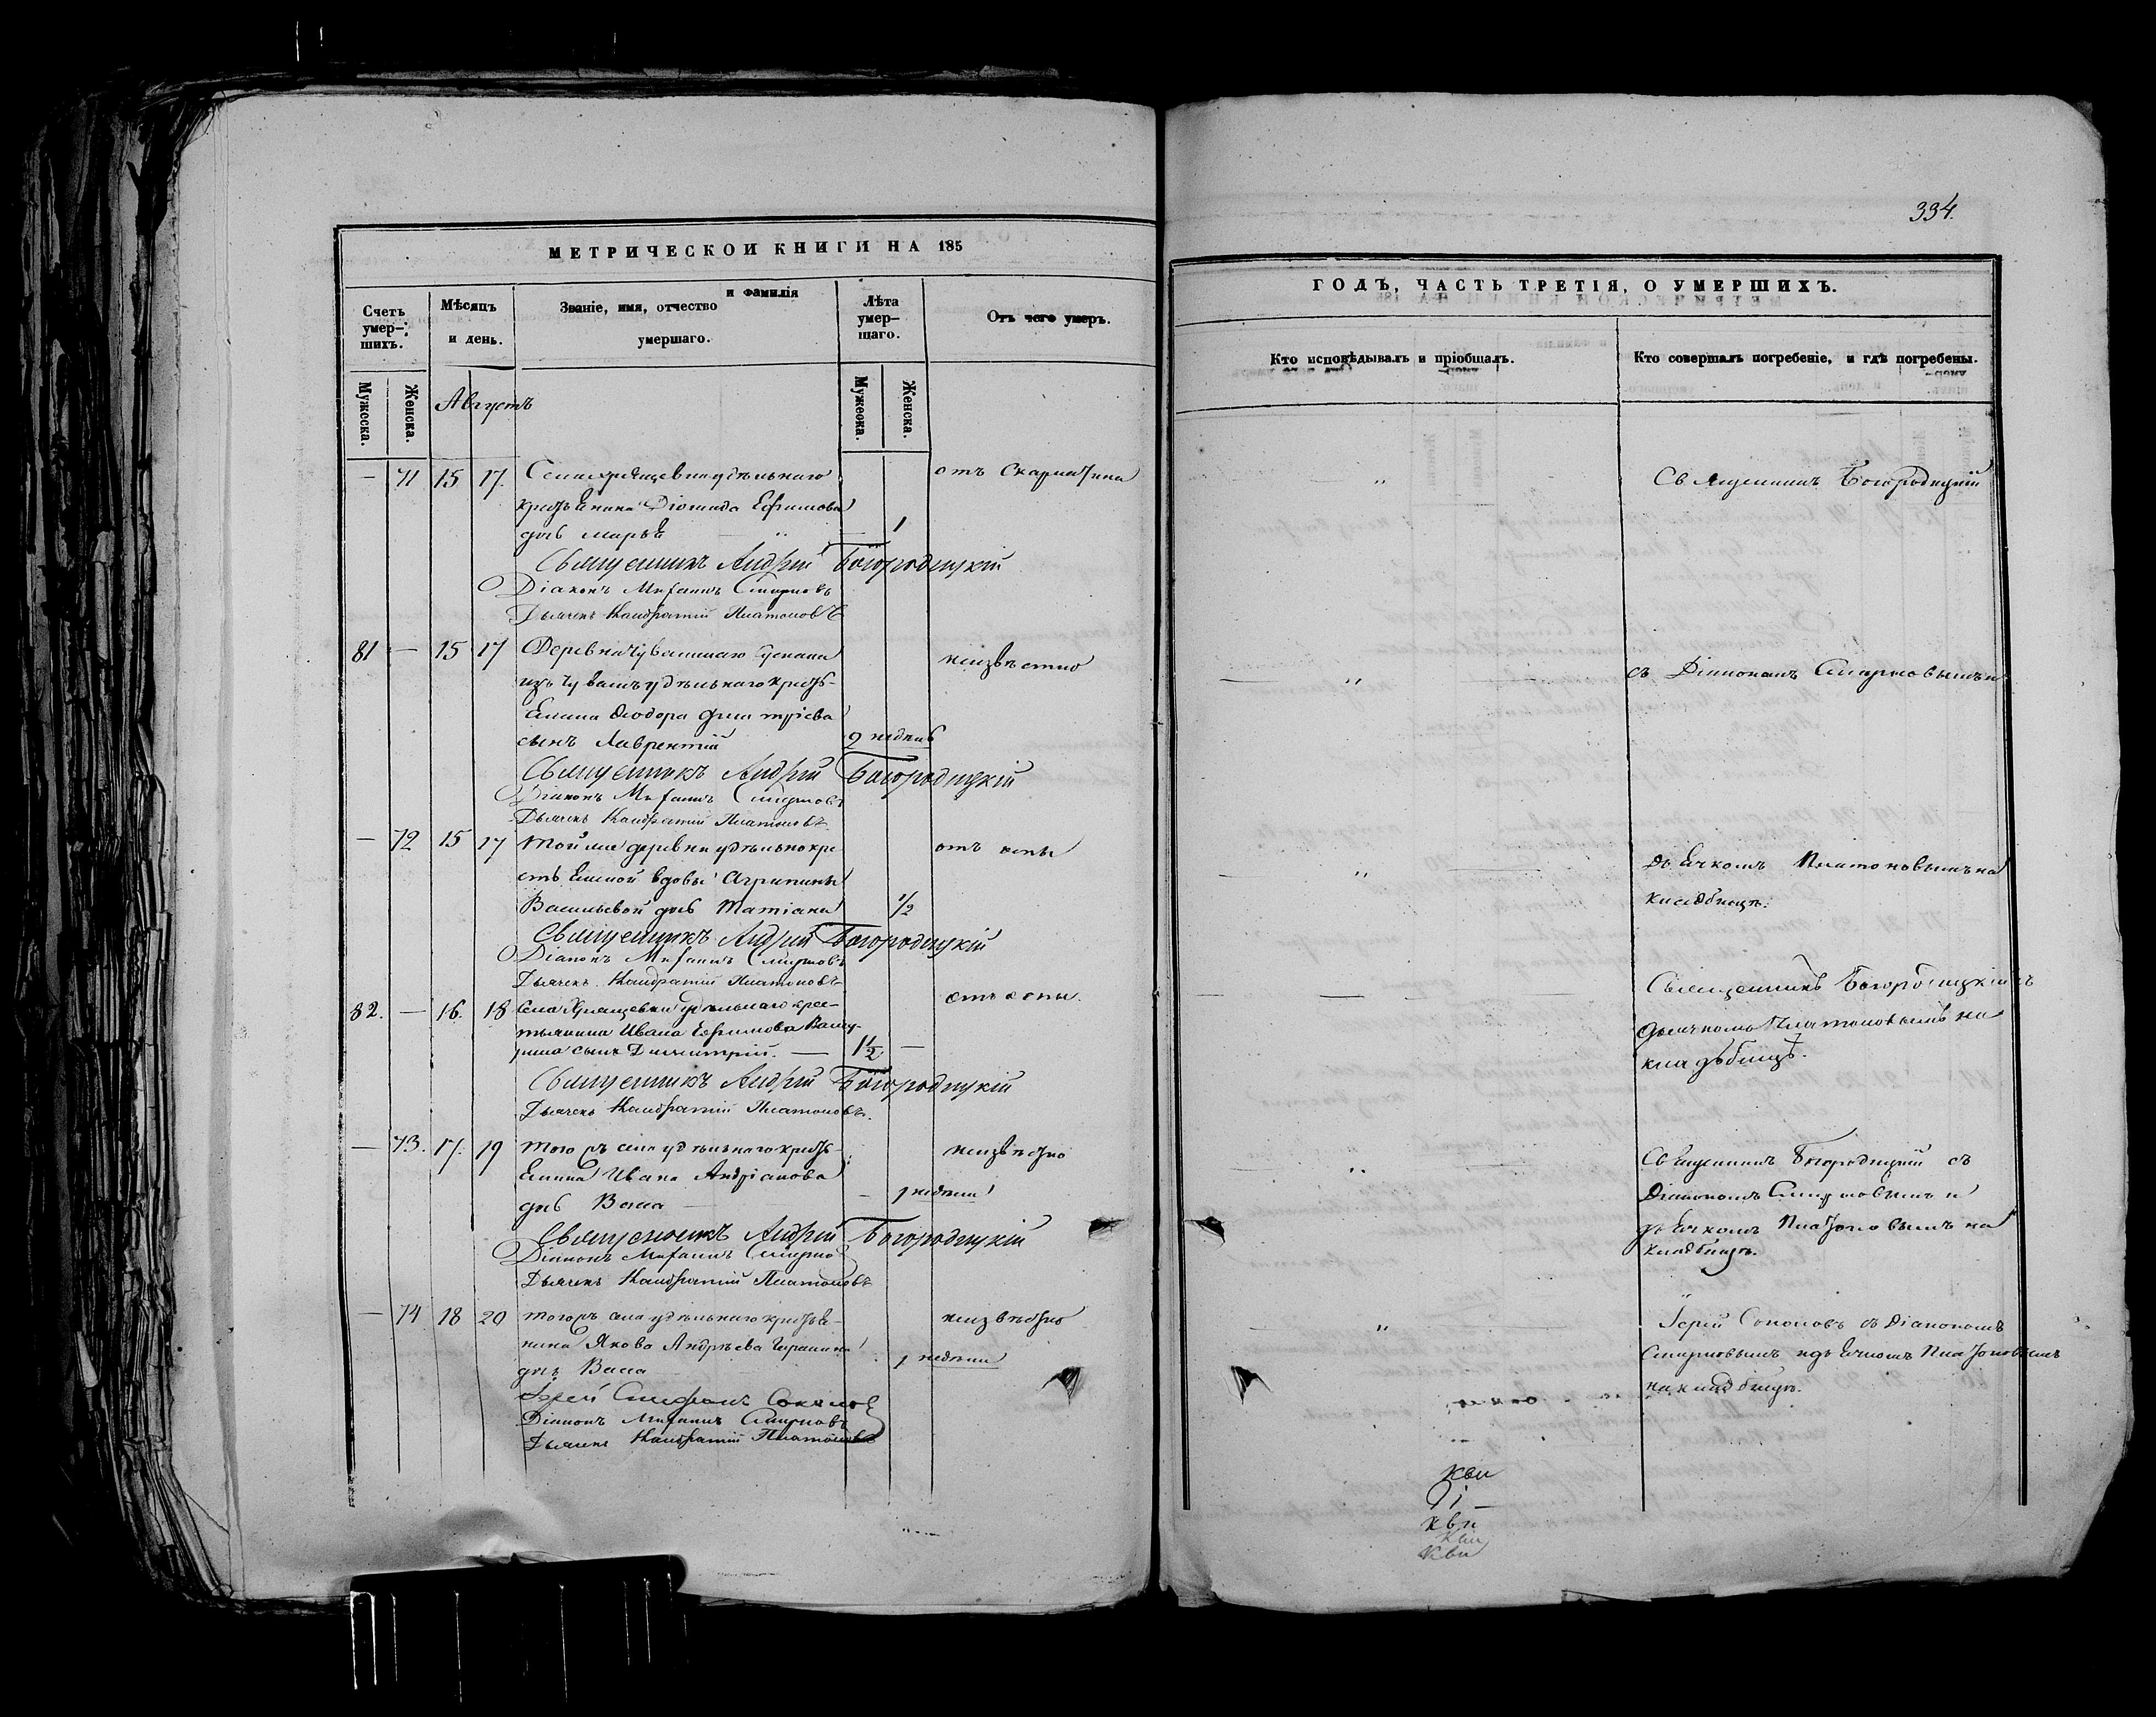 334.
МЕТРИЧЕСКОЙ КНИГИ НА 185
ГОДЪ, ЧАСТЬ ТРЕТІЯ, О УМЕРШИХЪ.
Счетъ умер-шихъ.
Мѣсяцъ и день.
Званіе, имя, отчество и фамилія умершаго.
Лѣта умер-шаго.
Отъ чего умеръ.
Кто исповѣдывалъ и пріобщалъ.
Кто совершалъ погребеніе, и гдѣ погребены.
Мужеска. Женска.
Августъ
Мужеска. Женска.
— 71 15 17. Села Хрящевки удѣльнаго отъ Скарлатина
крестьянина Діомида Ефимова
дчь Марья 1
Священникъ Андрей Богородицкій
Діаконъ Михаилъ Смирновъ
Дьячекъ Кондратій Платоновъ
Священникъ Богородицкій
81 — 15 17 Деревни Чувашскаго неизвѣстно
изъ Чувашъ удѣльнаго кресть-
янина Ѳеодора Дмитріева
сынъ Лаврентій 2 недѣль
Священникъ Андрей Богородицкій
Діаконъ Михаилъ Смирновъ
Дьячекъ Кондратій Платоновъ
съ Діакономъ Смирновымъ и
— 72 15 17 Той же деревни удѣльнокре
стьянской вдовы Агрипины
Васильевой дчь Татіана 1/2
Священникъ Андрей Богородицкій
Діаконъ Михаилъ Смирновъ
Дьячекъ Кондратій Платоновъ
дьячкомъ Платоновымъ на
кладбищѣ.
82. — 16. 18 Села Хрящевки удѣльнаго крес-
тьянина Ивана Ефимова
сынъ Димитрій. — 1 1/2 —
Священникъ Андрей Богородицкій
Дьячекъ Кондратій Платоновъ.
Священникъ Богородицкій съ
дьячкомъ Платоновымъ на
кладбищѣ.
— 73. 17. 19 Того жъ села удѣльнаго кресть- неизвѣстно
янина Ивана Андріанова
дчь Васса — 1 недѣли
Священникъ Андрей Богородицкій
Діаконъ Михаилъ Смирновъ
Дьячекъ Кондратій Платоновъ
Священникъ Богородицкій съ
Діакономъ Смирновымъ и
дьячкомъ Платоновымъ на
кладбищѣ.
— 74 18 20 Того жъ села удѣльнаго крестья- неизвѣстно
нина Якова Андрѣева
дчь Васса 1 недѣли
Іерей Соколовъ
Діаконъ Михаилъ Смирновъ
Дьячекъ Кондратій Платоновъ
Іерей Соколовъ съ Діакономъ
Смирновымъ и дьячкомъ Платоновымъ
на кладбищѣ.